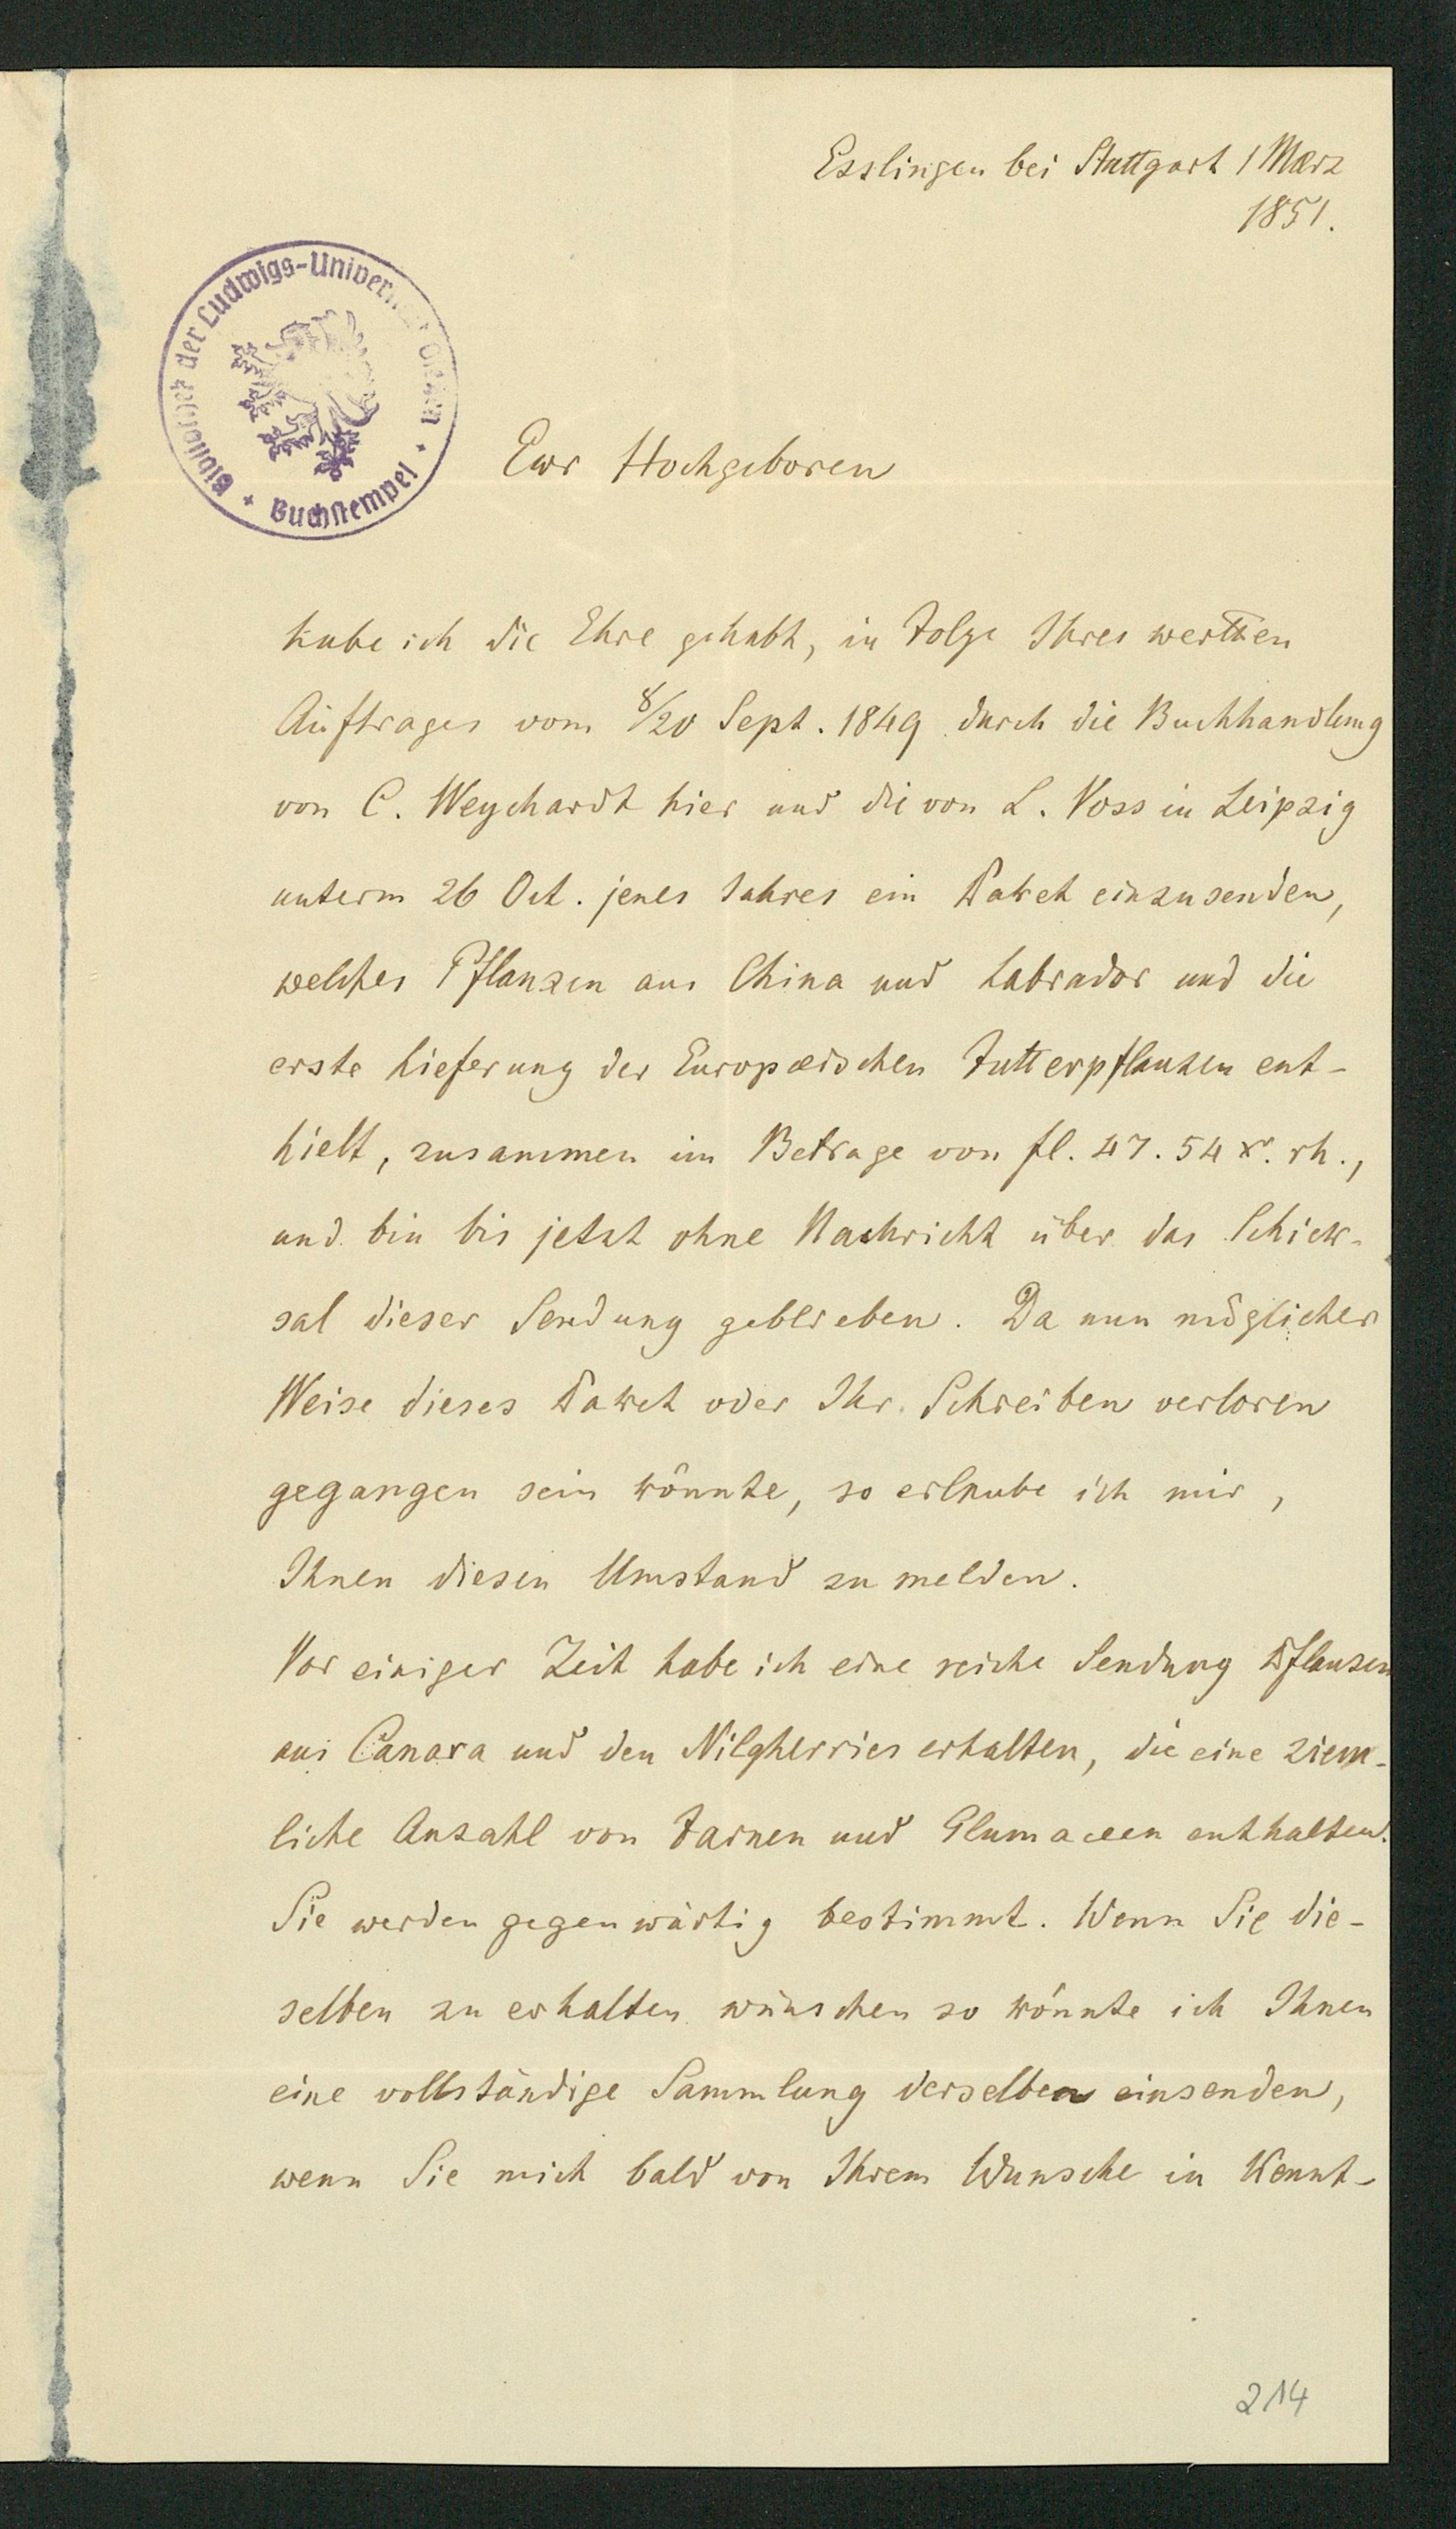 Esslingen bei Stuttgart 1 Mærz
1851.
Bibliothek der Ludwigs-Universität Gießen
+ Buchstempel +
Ewr Hochgeboren
habe ich die Ehre gehabt, in Folge Ihres werthen
Auftrages vom 8/20 Sept. 1849 durch die Buchhandlung
von C. Weychardt hier und die von L. Voss in Leipzig
unterm 26 Oct. jenes Jahres ein Paket einzusenden,
welches Pflanzen aus China und Labrador und die
erste Lieferung der Europæischen Futterpflanzen ent-
hielt, zusammen im Betrage von fl. 47. 54 xr. rh.,
und bin bis jetzt ohne Nachricht über das Schick-
sal dieser Sendung geblieben. Da nun möglicher
Weise dieses Paket oder Ihr Schreiben verloren
gegangen sein könnte, so erlaube ich mir,
Ihnen diesen Umstand zu melden.
Vor einiger Zeit habe ich eine reiche Sendung Pflanzen
aus Canara und den Nilgherries erhalten, die eine ziem-
liche Anzahl von Farnen und Glumaceen enthalten.
Sie werden gegenwärtig bestimmt. Wenn Sie die-
selben zu erhalten wünschen so könnte ich Ihnen
eine vollständige Sammlung derselben einsenden,
wenn Sie mich bald von Ihrem Wunsche in Kennt-
214